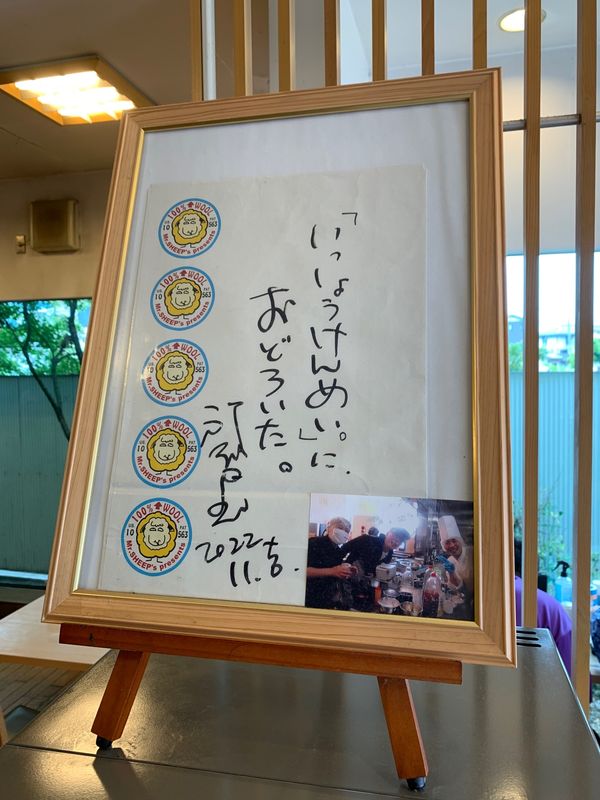 「いっしょうけんめい。」に、
おどろいた。
2022
11.吉.
100% WOOL
10
563
Mr.SHEEP's presents
100% WOOL
10
563
Mr.SHEEP's presents
100% WOOL
10
563
Mr.SHEEP's presents
100% WOOL
10
563
Mr.SHEEP's presents
100% WOOL
10
563
Mr.SHEEP's presents